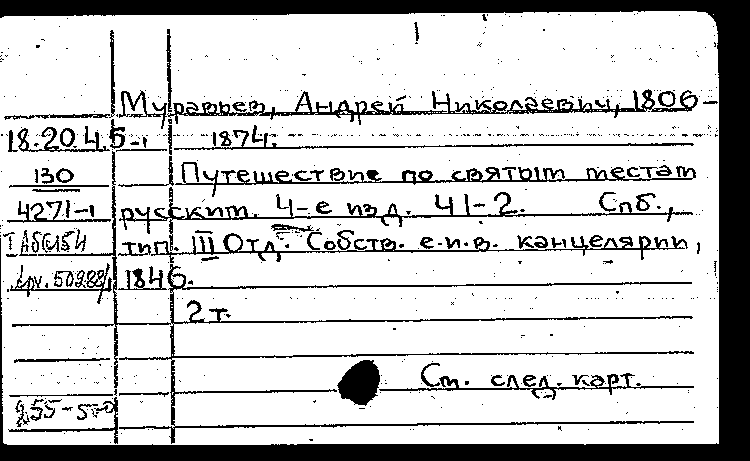 Муравьев, Андрей Николаевич, 1806-
18.204.5-1 1874.
130 Путешествие по святым местам
4271-1 русским. 4-е изд. Ч1-2. Спб.,
тип. III Отд. Собств. е.и.в. канцелярии,
1846.
2 т.
См. след. карт.
255-